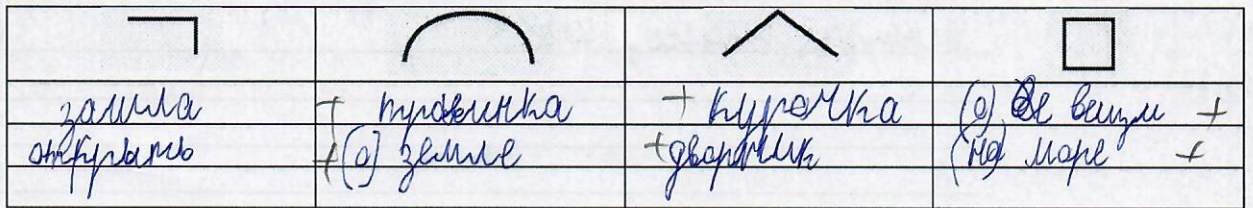 зашла + травинка + курочка (о) вещи +
открыть + (о) земле + дворник (на) море +